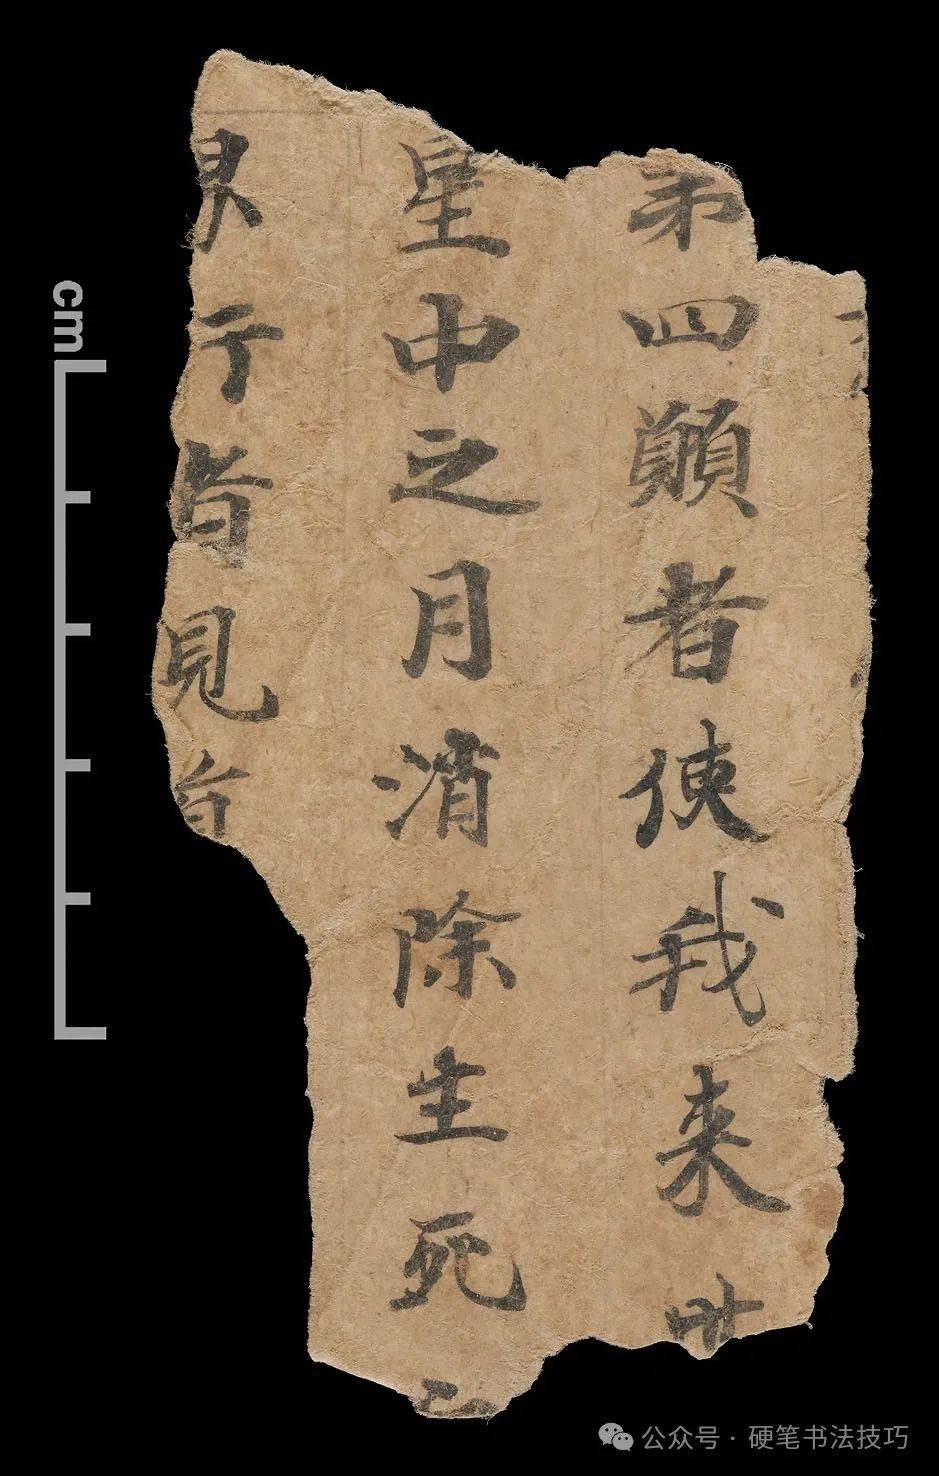 第四願者使我来世
星中之月消除生死之
界亍者見者
cm
公众号·硬笔书法技巧